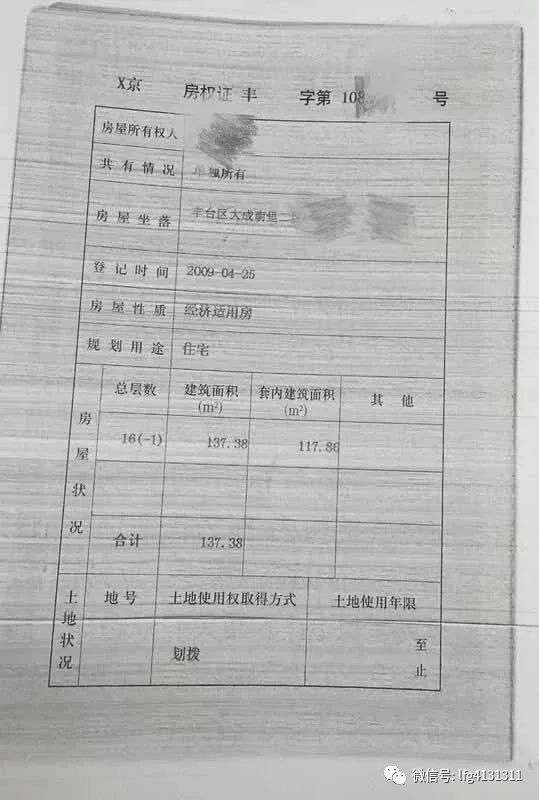 X京 房权证 丰 字第 108 号
房屋所有权人
共有情况 单独所有
房屋坐落 丰台区大成南里二
登记时间 2009-04-25
房屋性质 经济适用房
规划用途 住宅
房屋状况 总层数 建筑面积(m²) 套内建筑面积(m²) 其他
16(-1) 137.38 117.86
合计 137.38
土地状况 地号 土地使用权取得方式 土地使用年限
划拨 至
止
微信号: lfg4131311